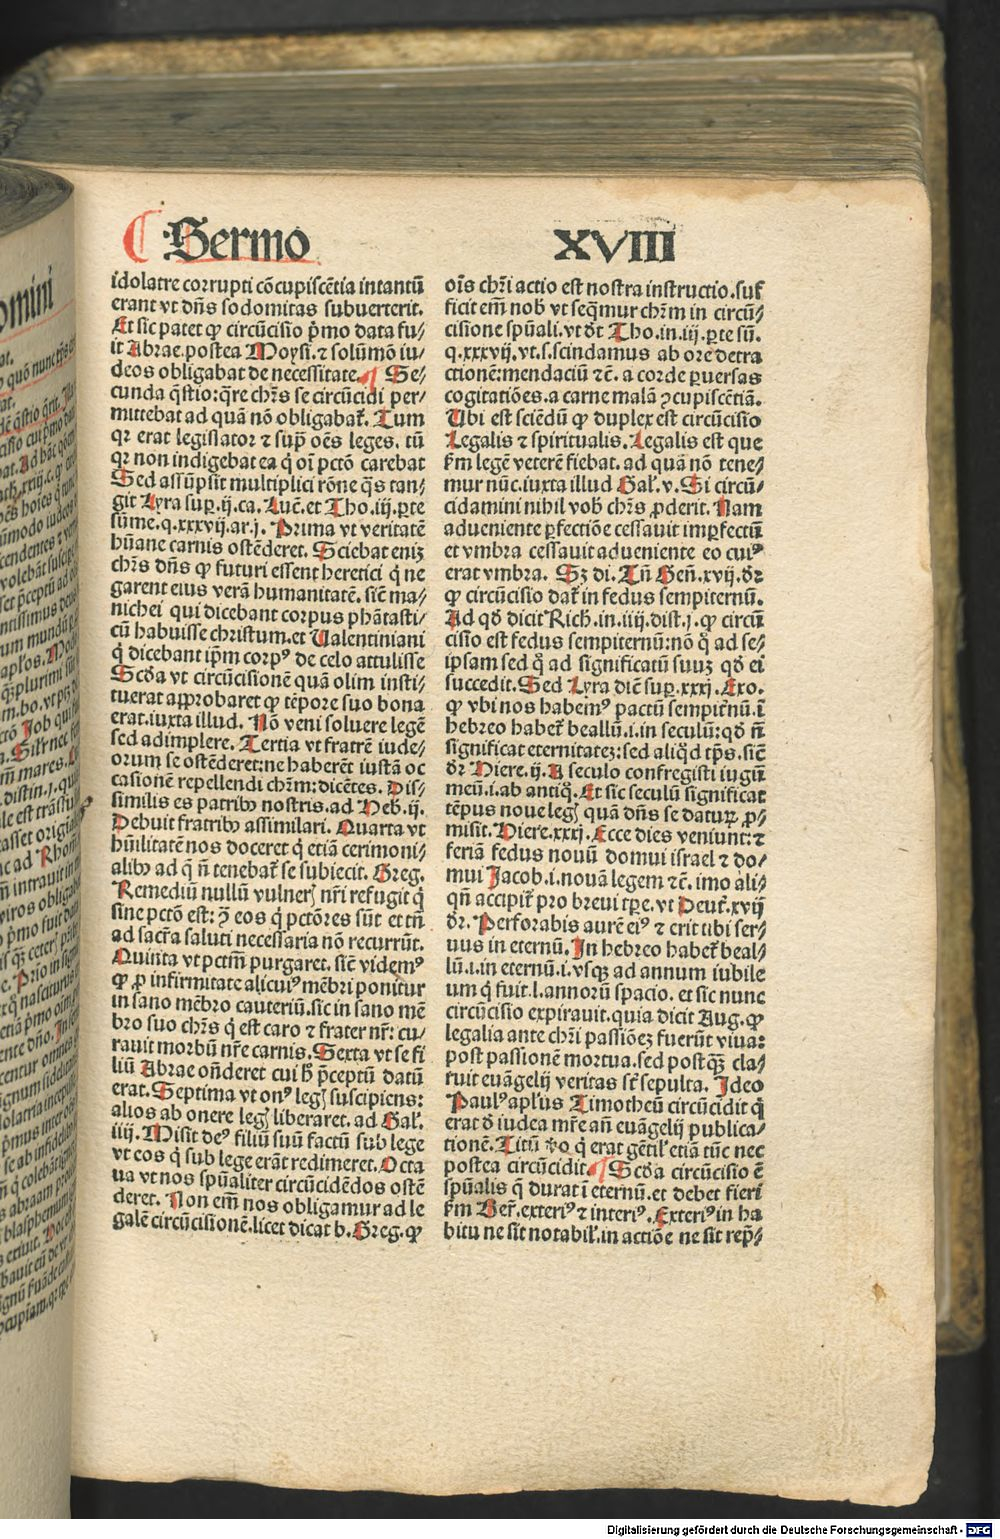 Sermo XVIII
idolatre corrupti cõcupiscẽtia intantũ
erant vt dñs sodomitas subuerterit.
Et sic patet ꝙ circũcisio p̃mo data fu⸗
it Abrae. postea Moysi. ⁊ solũmõ iu⸗
deos obligabat de necessitate. ¶ Se⸗
cunda q̃stio: q̃re chr̃s se circũcidi per⸗
mittebat ad quã nõ obligabat̃. Tum
qꝛ erat legislator ⁊ sup̃ oẽs leges. tũ
qꝛ non indigebat ea q̇ oĩ pctõ carebat
Sed assũpsit multiplici rõne q̃s tan⸗
git Lyra suꝑ. ij. ca. Luẽ. et Tho. iij. ꝑte
sũme. q. xxxvij. ar. j. Prima vt veritatẽ
hũane carnis ostẽderet. Sciebat eniꝫ
chr̃s dñs ꝙ futuri essent heretici q̇ ne
garent eius verã humanitatẽ. sic̃ ma⸗
nichei qui dicebant corpus phãtasti⸗
cũ habuisse christum. et Ualentiniani
q̇ dicebant ip̃m corpꝰ de celo attulisse
Scd̃a vt circũcisionẽ quã olim insti⸗
tuerat approbaret ꝙ tẽpore suo bona
erat. iuxta illud. Nõ veni soluere legẽ
sed adimplere. Tertia vt fratrẽ iude⸗
orum se ostẽderet: ne haberẽt iustã oc
casionẽ repellendi chr̃m: dicẽtes. Dis⸗
similis es patribꝰ nostris. ad Heb. ij.
Debuit fratribꝰ assimilari. Quarta vt
hũilitatẽ nos doceret q̇ etiã cerimoni⸗
alibꝰ ad q̃ ñ tenebat̃ se subiecit. Greg.
Remediũ nullũ vulneꝝ nr̃i refugit q̇
sine pctõ est: ꝫ̃ eos q̇ pctõres sũt et tñ
ad sacr̃a saluti necessaria nõ recurrũt.
Quinta vt pctm̃ purgaret. sic̃ videmꝰ
ꝙ ꝓ infirmitate alicuiꝰ mẽbri ponitur
in sano mẽbro cauteriũ. sic in sano mẽ
bro suo chr̃s q̇ est caro ⁊ frater nr̃: cu⸗
rauit morbũ nr̃e carnis. Sexta vt se fi
liũ Abrae oñderet cui h̃ p̃ceptũ datũ
erat. Septima vt onꝰ legꝭ suscipiens:
alios ab onere legꝭ liberaret. ad Gal̃.
iiij. Misit deꝰ filiũ suũ factũ sub lege
vt eos q̇ sub lege erãt redimeret. Octa
ua vt nos spũaliter circũcidẽdos ostẽ
deret. Non em̃ nos obligamur ad le
galẽ circũcisionẽ. licet dicat b. Greg. ꝙ
oĩs chr̃i actio est nostra instructio. suf
ficit em̃ nob̃ vt seq̃mur chr̃m in circũ⸗
cisione spũali. vt dt̃ Tho. in. iij. ꝑte sũ.
q. xxxvij. vt. s. scindamus ab ore detra
ctionẽ: mendaciũ ⁊c̃. a corde ꝑuersas
cogitatiões. a carne malã ꝯcupiscẽtiã.
Ubi est sciẽdũ ꝙ duplex est circũcisio
Legalis ⁊ spiritualis. Legalis est que
ẜm legẽ veterẽ fiebat. ad quã nõ tene⸗
mur nũc. iuxta illud Gal̃. v. Si circũ⸗
cidamini nihil vob̃ chr̃s ꝓderit. Nam
adueniente ꝑfectiõe cessauit imꝑfectũ
et vmbra cessauit adueniente eo cuiꝰ
erat vmbra. Sꝫ di. Tñ Geñ. xvij. dr̃
ꝙ circũcisio dat̃ in fedus sempiternũ.
Ad qd̃ dicit Rich. in. iiij. dist. j. ꝙ circũ
cisio est fedus sempiternũ: nõ q̃ ad se⸗
ipsam sed q̃ ad significatũ suuꝫ qd̃ ei
succedit. Sed Lyra diẽ suꝑ. xxxj. Exo.
ꝙ vbi nos habemꝰ pactũ sempit̃nũ. ĩ
hebreo habet̃ beallũ. i. in seculũ: qd̃ ñ
significat eternitateꝫ: sed aliq̇d tp̃s. sic̃
dr̃ Hiere. ij. A seculo confregisti iugũ
meũ. i. ab antiq̃. Et sic seculũ significat
tẽpus noue legꝭ quã dñs se daturꝰ ꝓ⸗
misit. Hiere. xxxj. Ecce dies veniunt: ⁊
feriã fedus nouũ domui israel ⁊ do⸗
mui Jacob. i. nouã legem ⁊c̃. imo ali⸗
qñ accipit̃ pro breui tp̃e. vt Deut̃. xvij
dr̃. Perforabis aurẽ eiꝰ ⁊ erit tibi ser⸗
uus in eternũ. In hebreo habet̃ beal⸗
lũ. i. in eternũ. i. vsqꝫ ad annum iubile
um q̇ fuit. l. annorũ spacio. et sic nunc
circũcisio expirauit. quia dicit Aug. ꝙ
legalia ante chr̃i passiõeꝫ fuerũt viua:
post passionẽ mortua. sed postqꝫ̃ cla⸗
ruit euãgelij veritas st̃ sepulta. Ideo
Paulꝰ apl̃us Timotheũ circũcidit q̇
erat d̃ iudea mr̃e añ euãgelij publica⸗
tionẽ. Titũ ꝟo q̇ erat gẽtil̃ etiã tũc nec
postea circũcidit. ¶ Scd̃a circũcisio ẽ
spũalis q̃ durat ĩ eternũ. et debet fieri
ẜm Ber̃. exteriꝰ ⁊ interiꝰ. Exteriꝰ in ha
bitu ne sit notabil̃. in actiõe ne sit rep̃⸗
Digitalisierung gefördert durch die Deutsche Forschungsgemeinschaft - DFG